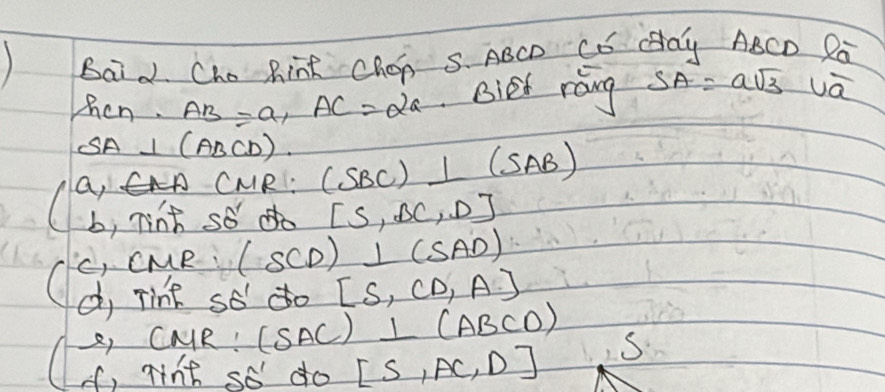 )
Bài 2. Cho hình chóp S.ABCD có đáy ABCD là
hcn. AB = a, AC = 2a. Biết rằng SA = a√3 và
SA ⊥ (ABCD).
a, CMR: (SBC) ⊥ (SAB)
b, Tính số đo [S, BC, D]
c, CMR: (SCD) ⊥ (SAD)
d, Tính số đo [S, CD, A]
e, CMR: (SAC) ⊥ (ABCD)
f, Tính số đo [S, AC, D]
S